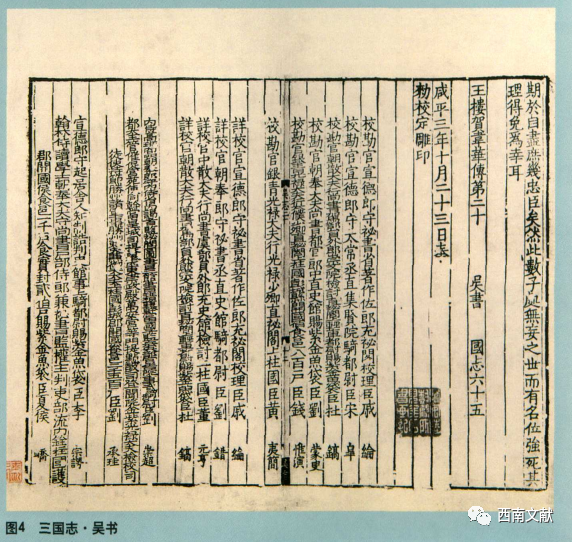 期於自盡庶幾忠臣矣然此數子處無妄之世而有名位強死其
理得免為幸耳
王樓賀韋華傳第二十 吳書 國志六十五
咸平三年十月二十三日奉
勑校定雕印
校勘官宣德郎守祕書省著作佐郎充祕閣校理臣戚 綸
校勘官宣德郎守太常丞直集賢院騎都尉臣宋 皐
校勘官朝散大夫行尚書 臣杜 鎬
校勘官朝奉大夫尚書都官郎中直史館賜紫金魚袋臣劉 蒙叟
校勘官 食邑六百戶臣錢 惟演
校勘官銀青光祿大夫行光祿少卿直祕閣上柱國臣黃 夷簡
詳校官宣德郎守祕書省著作佐郎充祕閣校理臣戚 綸
詳校官朝奉郎守祕書丞直史館騎都尉臣劉 鍇
詳校官中散大夫行尚書虞部員外郎充史館檢討上柱國臣董 元亨
詳校官朝散大夫行尚書 臣杜 鎬
臣劉 崇超
臣劉 承珪
宣德郎守起居舍人知制誥 騎都尉賜紫金魚袋臣李 宗諤
翰林侍讀學士朝奉大夫守尚書兵部侍郎兼祕書監權主判吏部流內銓柱國譙
郡開國侯食邑一千八百戶食實封貳伯戶賜紫金魚袋臣夏侯 嶠
图4 三国志·吴书
西南文献